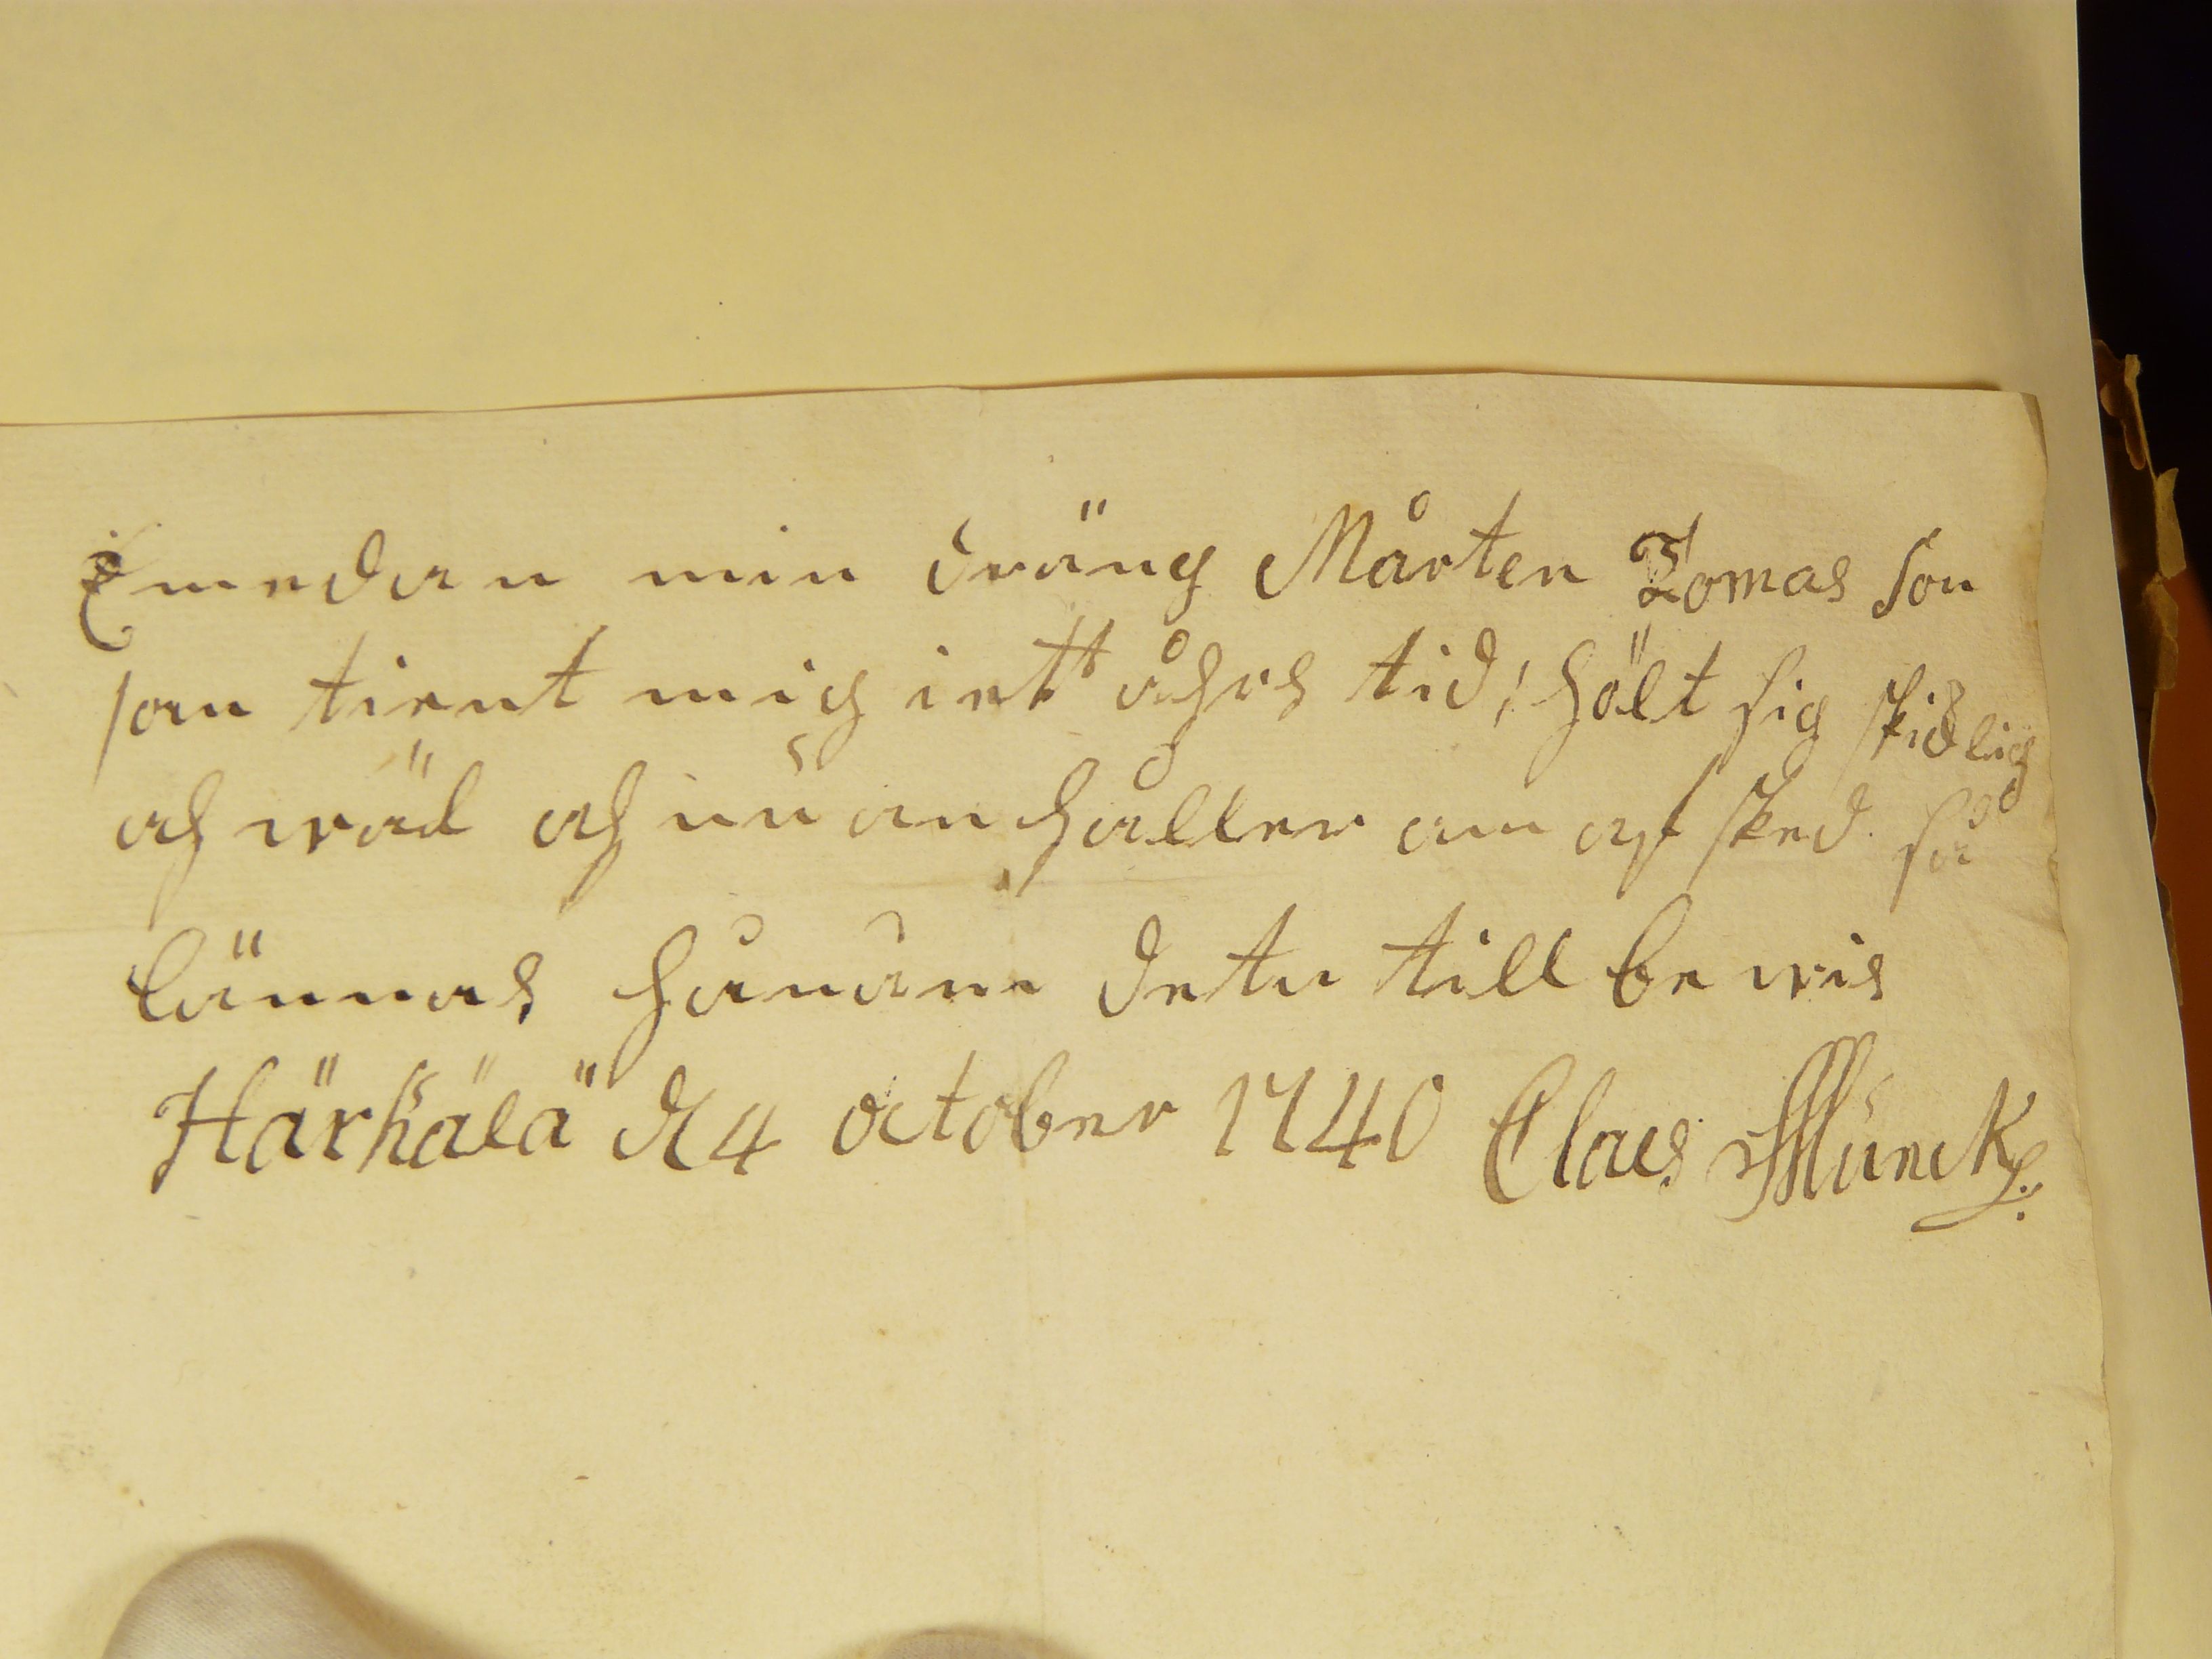 Emedan min dräng Mårten Tomas son
som tient mig iett åhrs tid, hölt sig skickelig
och wäl och nu anhåller om afsked så
lämnas honom deta till bewis
Härkälä d 4 october 1740 Claes Munck